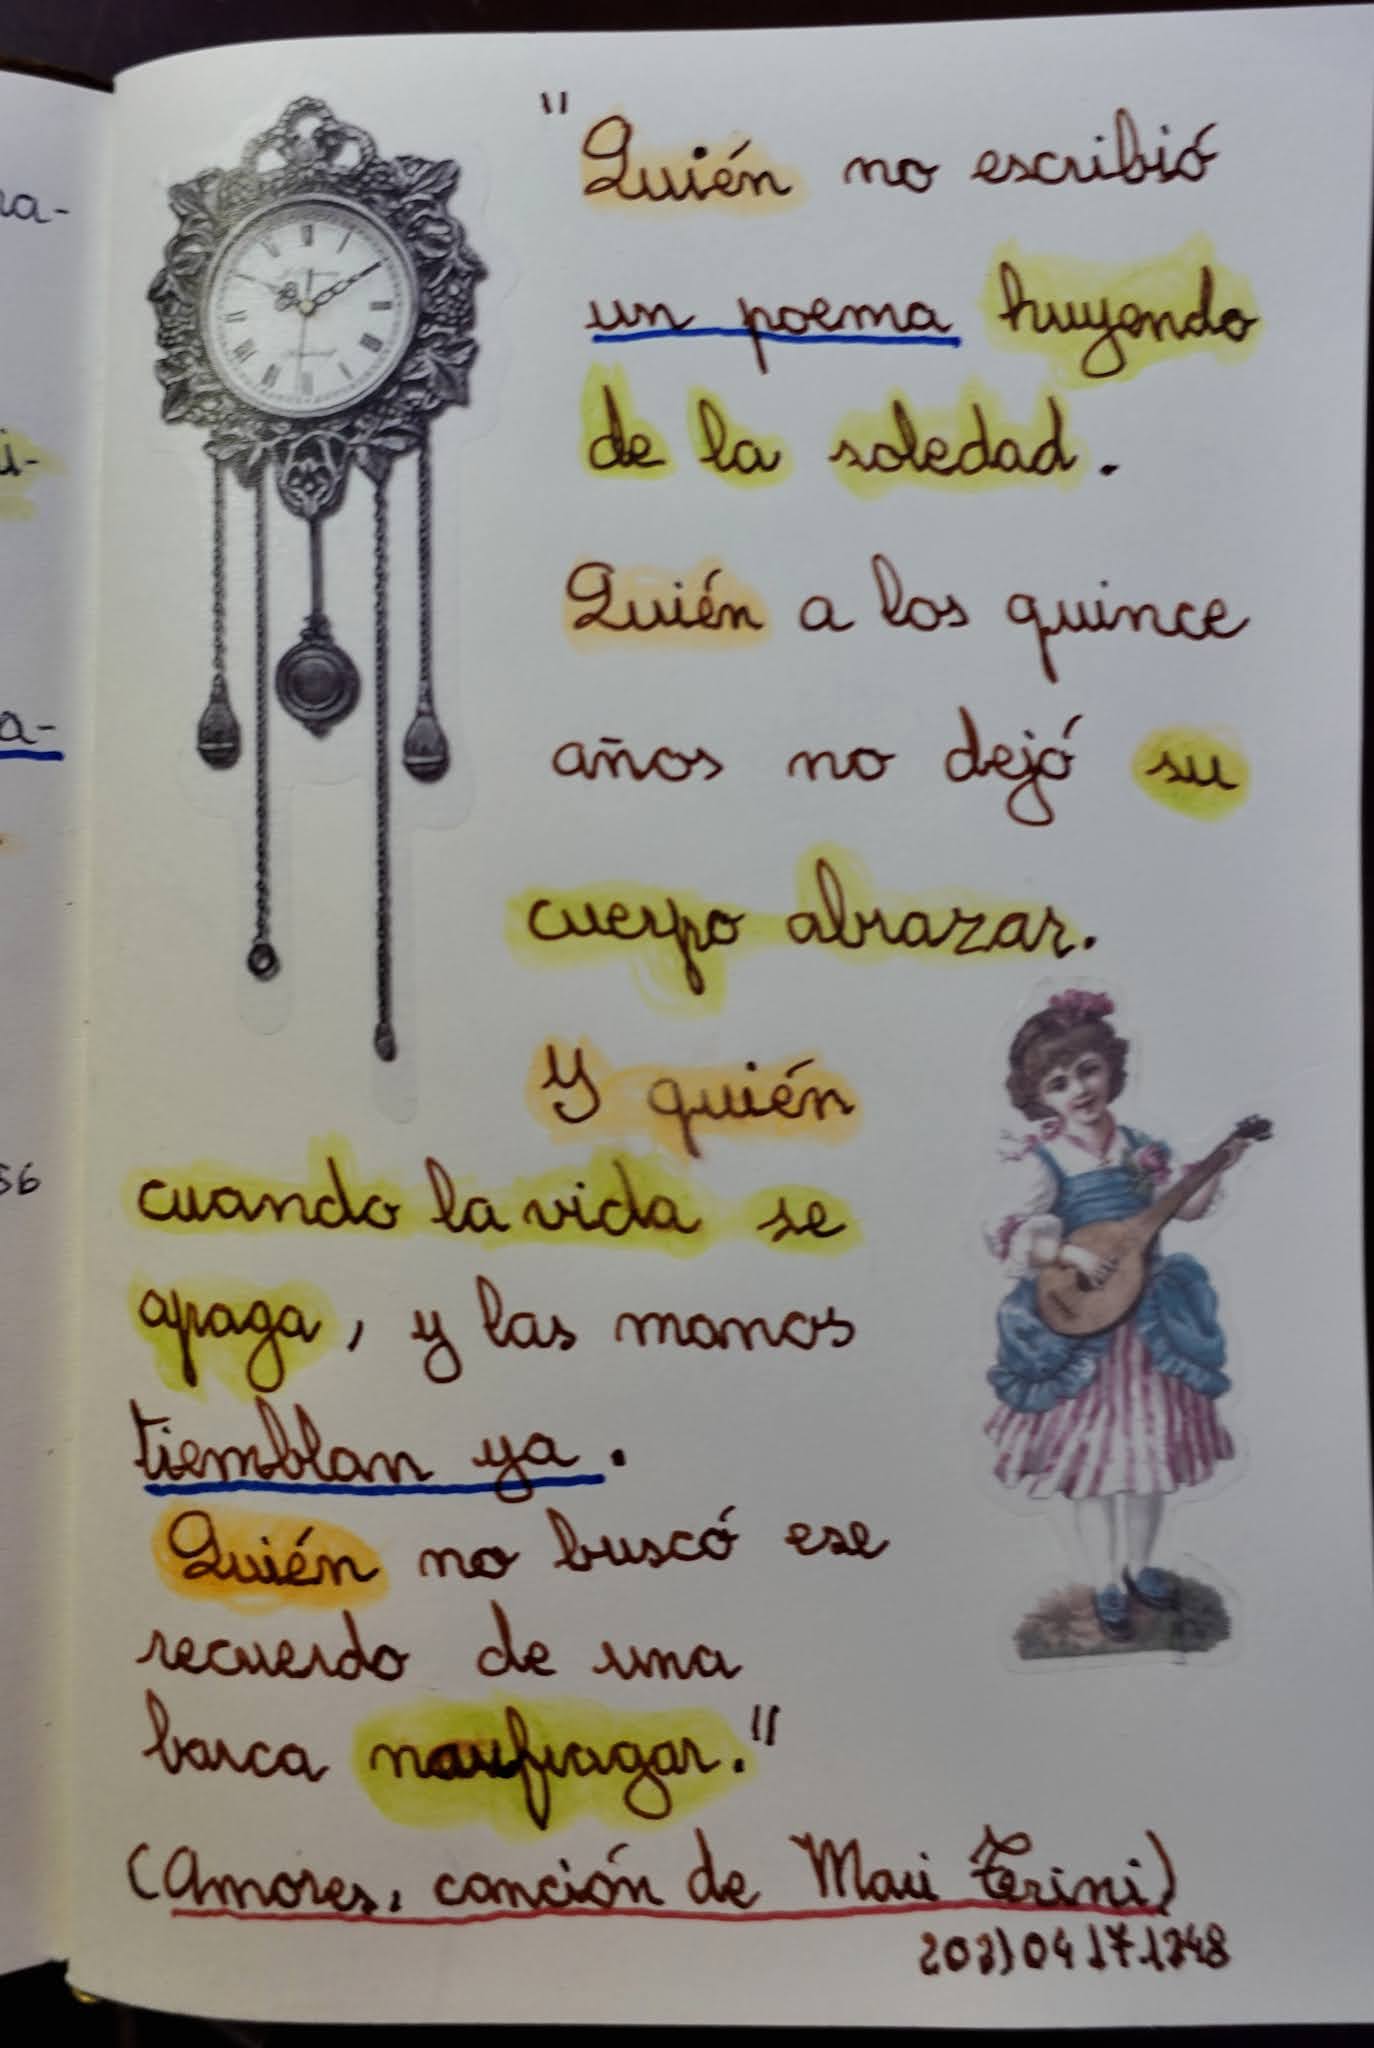 "Quién no escribió
un poema huyendo
de la soledad.
Quién a los quince
años no dejó su
cuerpo abrazar.
Y quién
cuando la vida se
apaga, y las manos
tiemblan ya.
Quién no buscó ese
recuerdo de una
barca naufragar."
(Amores, canción de Mari Trini)